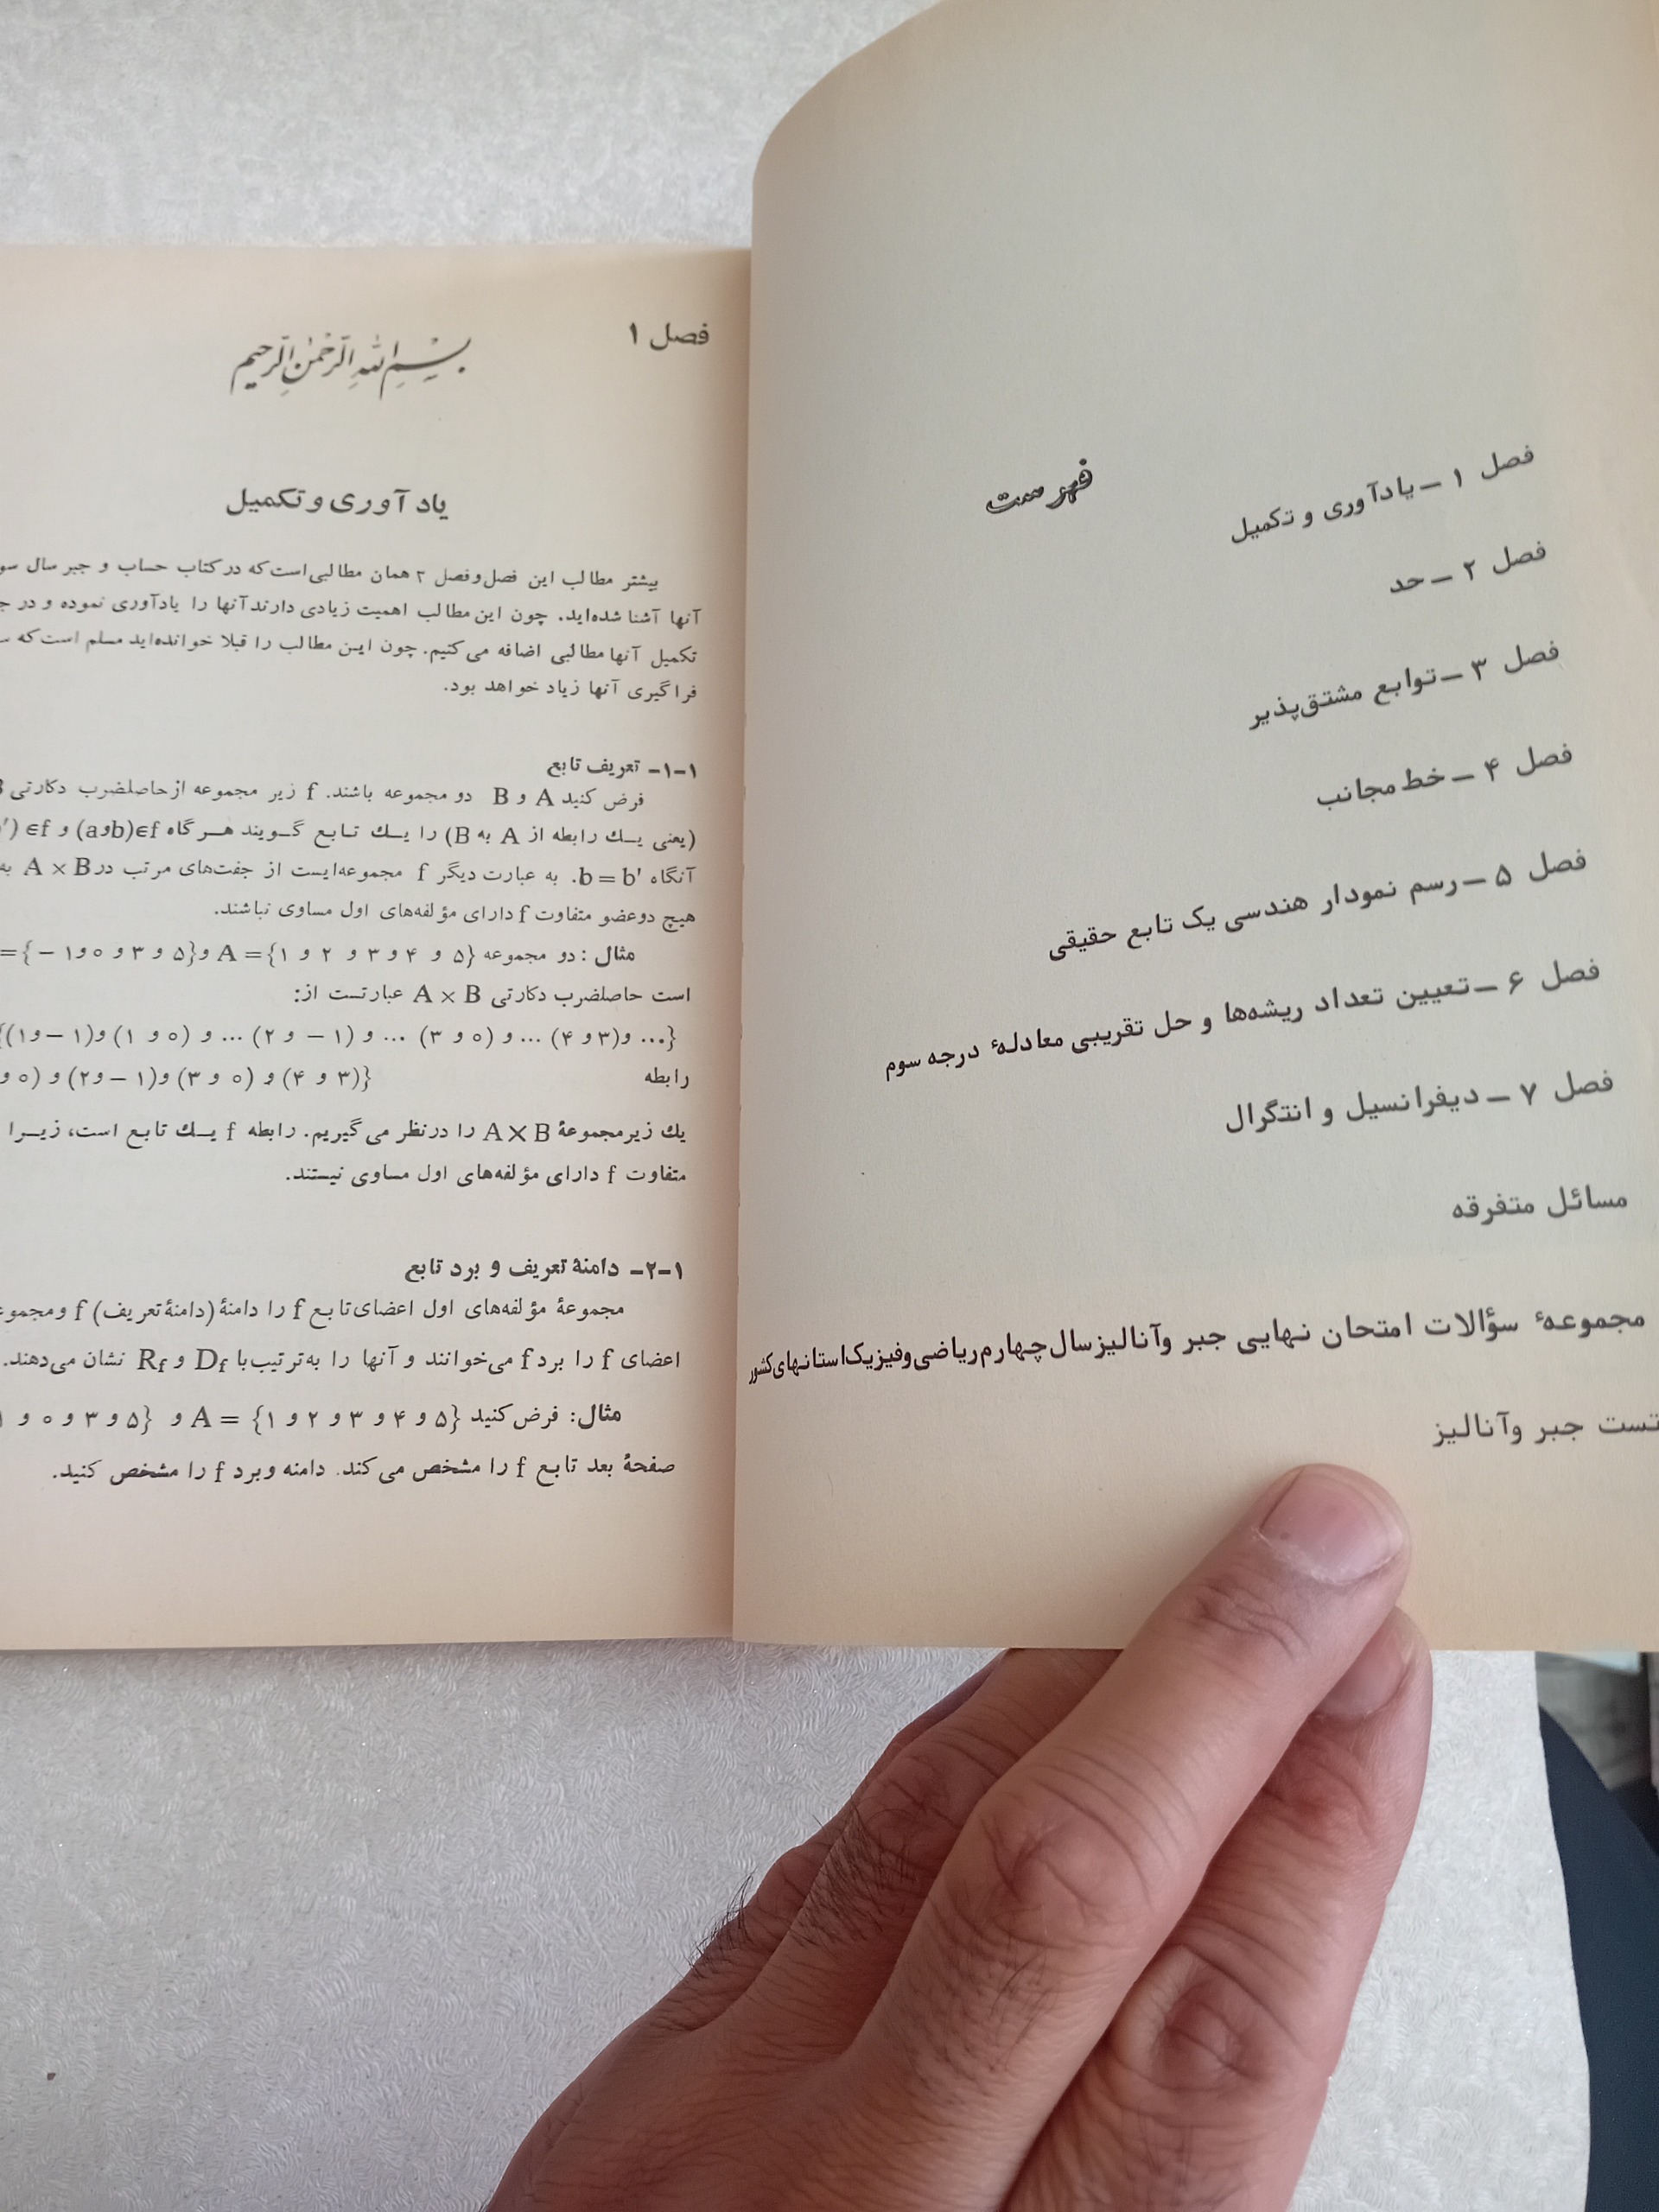 فهرست
فصل ۱ – یادآوری و تکمیل
فصل ۲ – حد
فصل ۳ – توابع مشتق‌پذیر
فصل ۴ – خط مجانب
فصل ۵ – رسم نمودار هندسی یک تابع حقیقی
فصل ۶ – تعیین تعداد ریشه‌ها و حل تقریبی معادلهٔ درجه سوم
فصل ۷ – دیفرانسیل و انتگرال
مسائل متفرقه
مجموعهٔ سؤالات امتحان نهایی جبر وآنالیز سال چهارم ریاضی و فیزیک استانهای کشور
تست جبر وآنالیز
فصل ۱
بسم الله الرحمن الرحیم
یادآوری و تکمیل
بیشتر مطالب این فصل و فصل ۲ همان مطالبی است که در کتاب حساب و جبر سال
آنها آشنا شده‌اید. چون این مطالب اهمیت زیادی دارند آنها را یادآوری نموده و در
تکمیل آنها مطالبی اضافه می‌کنیم. چون این مطالب را قبلا خوانده‌اید مسلم است که
فراگیری آنها زیاد خواهد بود.
۱-۱- تعریف تابع
فرض کنید A و B دو مجموعه باشند. f زیر مجموعه از حاصلضرب دکارتی
(یعنی یك رابطه از A به B) را یك تابع گویند هرگاه (a و b)∈f و ∈f
آنگاه b=b'. به عبارت دیگر f مجموعه‌ایست از جفت‌های مرتب در A×B
هیچ دو عضو متفاوت f دارای مؤلفه‌های اول مساوی نباشند.
مثال: دو مجموعه A={۱ و ۲ و ۳ و ۴ و ۵} و ={-۱ و ۰ و ۳ و ۵}
است حاصلضرب دکارتی A×B عبارتست از:
{(۱ و -۱) و (۱ و ۰) و ... (۲ و -۱) و ... (۳ و ۰) و ... (۴ و ۳) و ...}
رابطه (۲ و -۱) و (۳ و ۰) و (۴ و ۳)}
یك زیرمجموعهٔ A×B را درنظر می‌گیریم. رابطه f یك تابع است، زیرا
متفاوت f دارای مؤلفه‌های اول مساوی نیستند.
۱-۲- دامنهٔ تعریف و برد تابع
مجموعهٔ مؤلفه‌های اول اعضای تابع f را دامنهٔ (دامنهٔ تعریف) f و
اعضای f را برد f می‌خوانند و آنها را به‌ترتیب با Df و Rf نشان می‌دهند.
مثال: فرض کنید A={۱ و ۲ و ۳ و ۴ و ۵} و و ۰ و ۳ و ۵}
صفحهٔ بعد تابع f را مشخص می‌کند. دامنه و برد f را مشخص کنید.